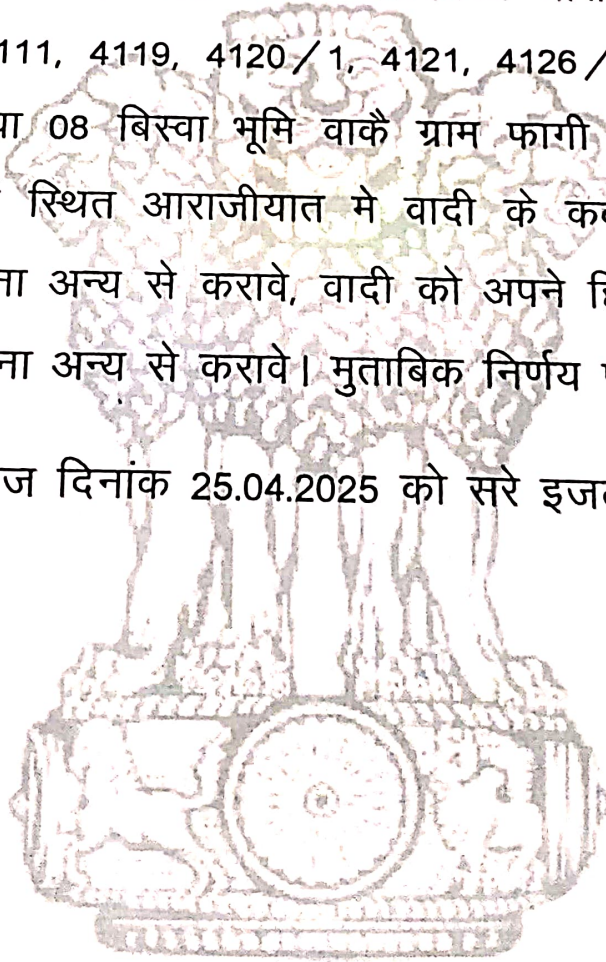 111, 4119, 4120/1, 4121, 4126/
08 बिस्वा भूमि वाकै ग्राम फागी
स्थित आराजीयात मे वादी के
अन्य से करावे, वादी को अपने
अन्य से करावे। मुताबिक निर्णय
दिनांक 25.04.2025 को सरे